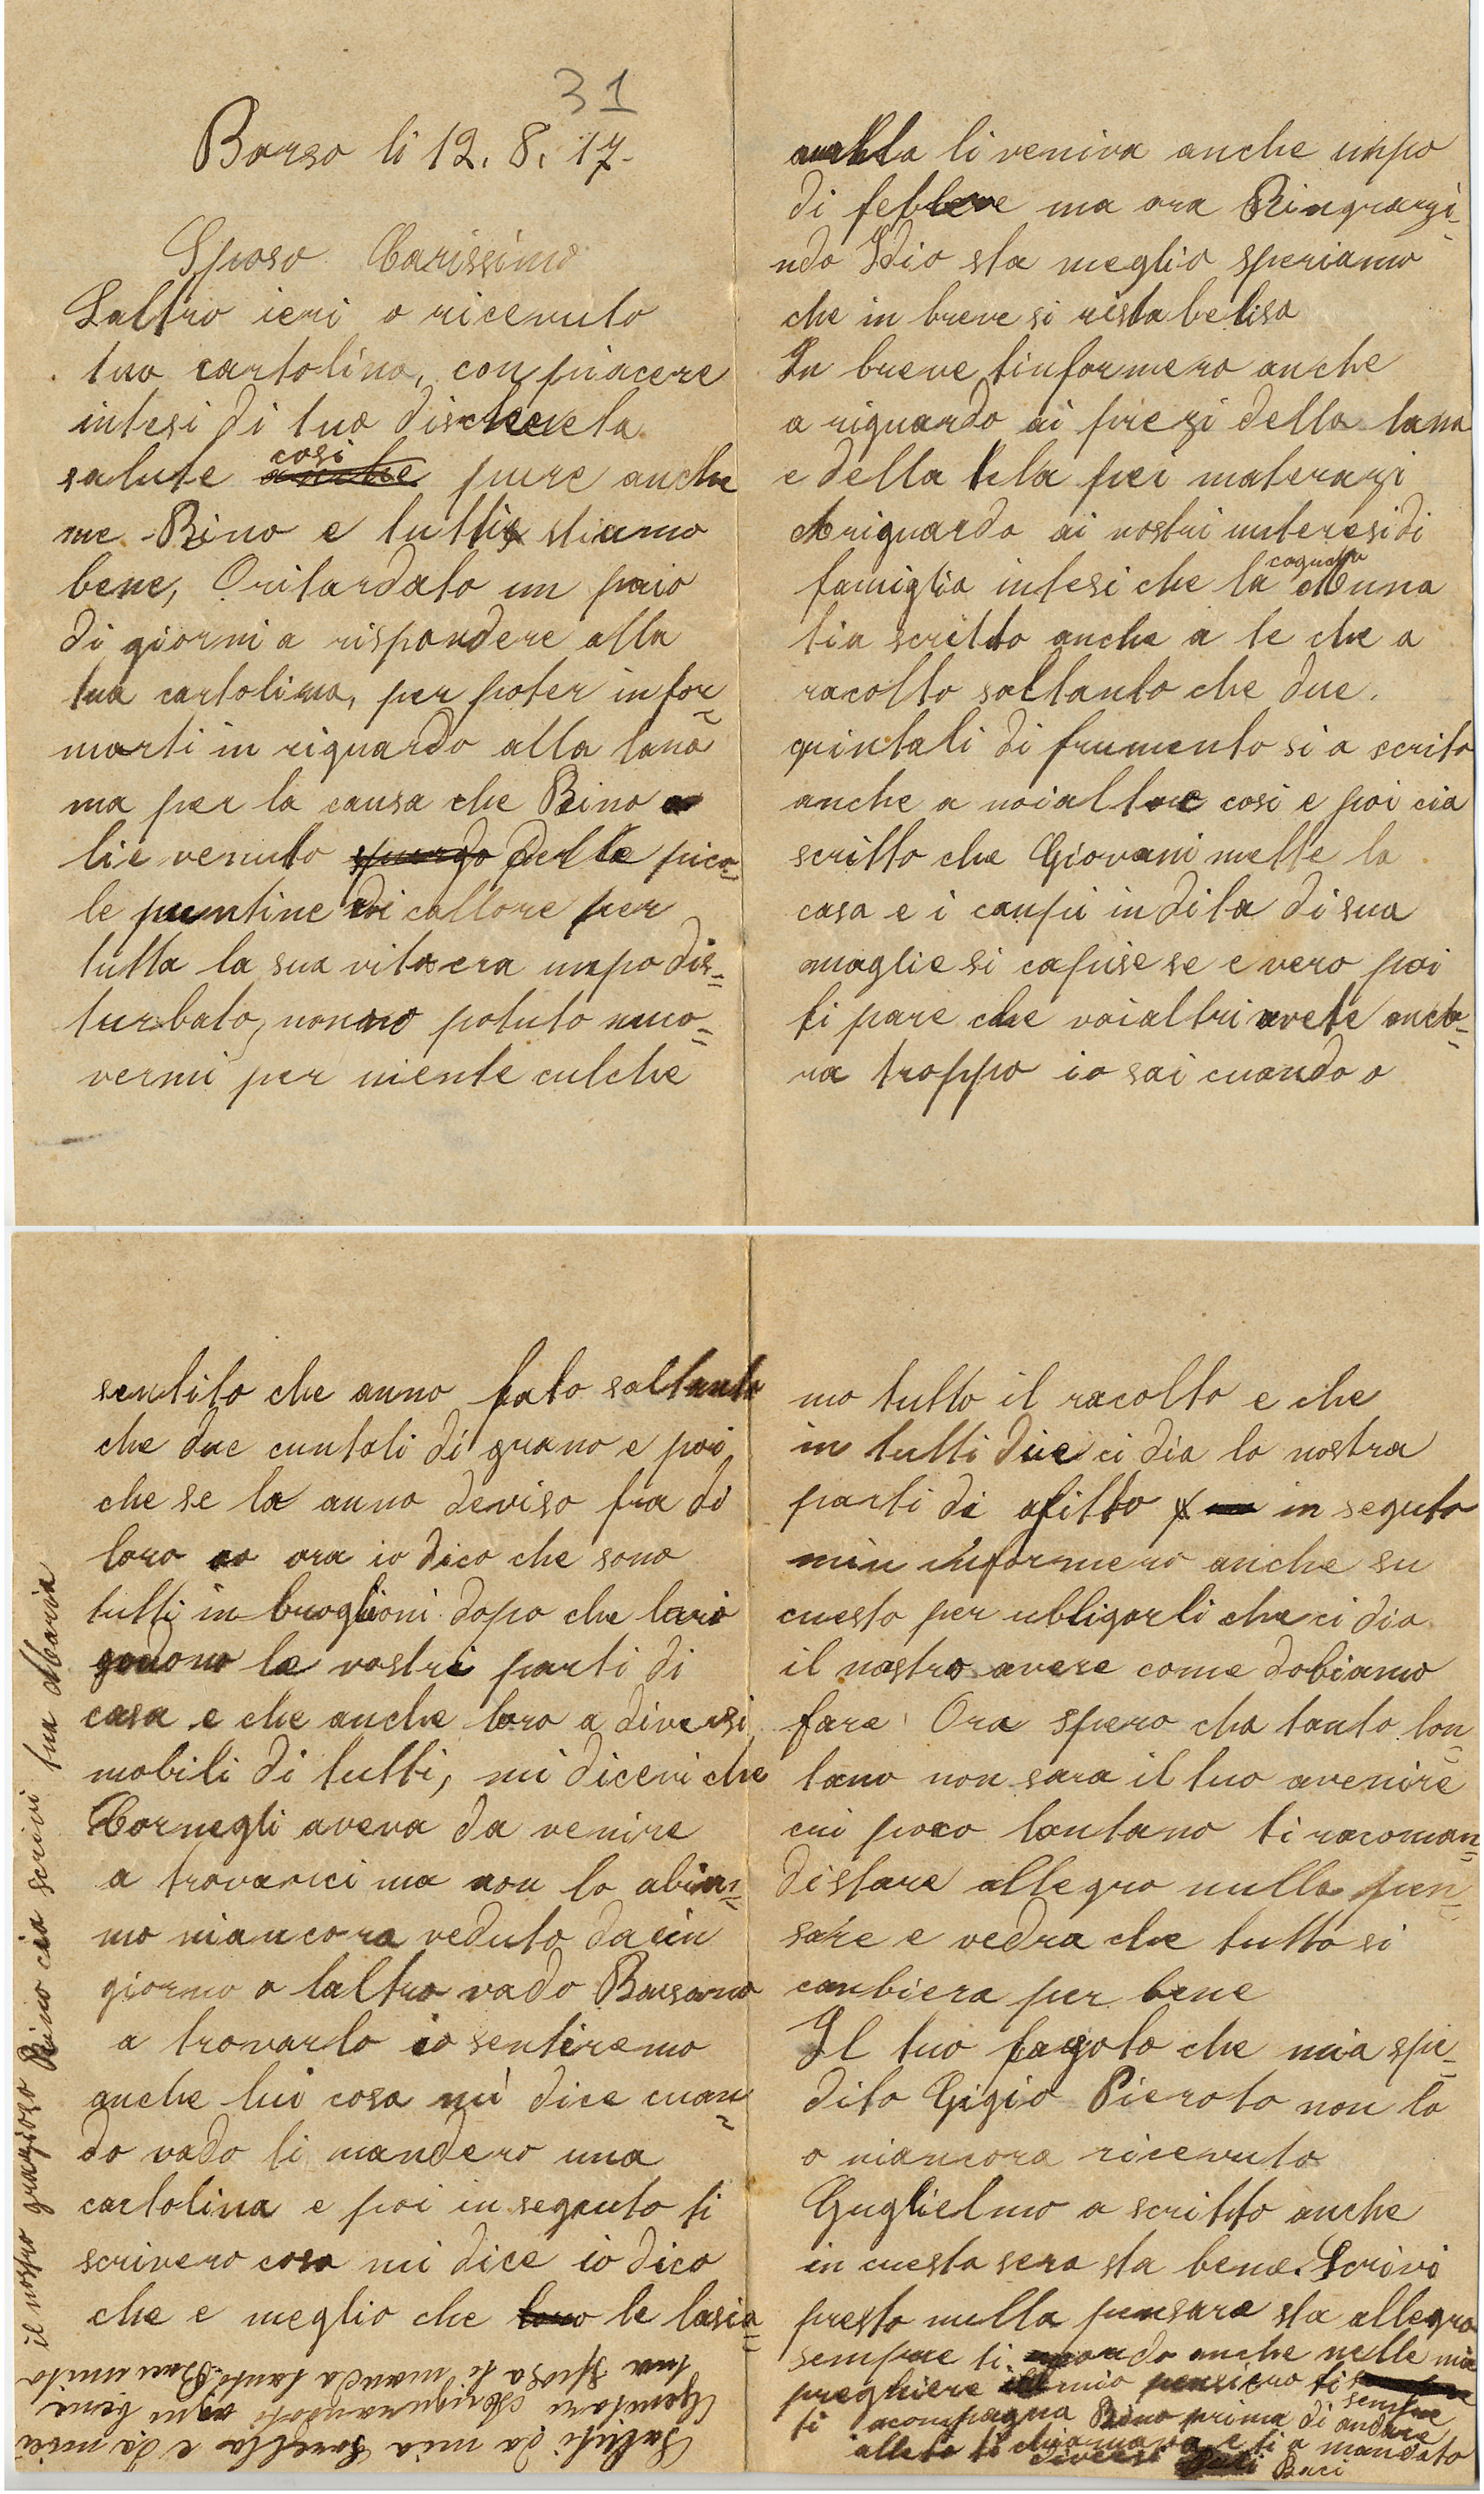 31
Borso li 12. 8. 17.
Sposo Carissimo
Laltro ieri o ricevuto
tua cartolina, con piacere
intesi di tua discreta
salute cosi pure anche
me Rino e tutti stiamo
bene, O ritardato un paio
di giorni a rispondere alla
tua cartolina, per poter infor=
marti in riguardo alla lana
ma per la causa che Rino
lie venuto delle pico=
le puntine di callore per
tutta la sua vita era unpo dis=
turbato, non o potuto muo=
vermi per niente culche
li veniva anche unpo
di febbre ma ora Ringrazi=
ndo Idio sta meglio speriamo
che in breve si ristabelisa
In breve tinformero anche
a riguardo ai prezi della lana
e della tela pei materazi
A riguardo ai nostri interesi di
famiglia intesi che la cognata
tia scritto anche a te che a
racolto soltanto che due
quintali di frumento si a scrito
anche a noialtre cosi e poi cia
scritto che Giovani mette la
casa e i canpi in dita di sua
moglie si capise se e vero poi
ti pare che voialtri avete anco=
ra troppo io sai cuando o
sentito che anno fato soltanto
che due cuntali di grano e poi
che se la anno deviso fra di
loro ora io dico che sono
tutti in broglioni dopo che loro
godono le vostri parti di
casa e che anche loro a diversi
mobili di tutti, mi dicevi che
Cornegli aveva da venire
a trovarci ma non lo abia=
mo niancora veduto da un
giorno a laltro vado Bassano
a trovarlo io sentiremo
anche lui cosa mi dice cuan=
do vado ti mandero una
cartolina e poi in seguto ti
scrivero cosa mi dice io dico
che e meglio che loro le lasia=
mo tutto il racolto e che
in tutti due ci dia la nostra
parti di afitto in seguto
informero anche su
cuesto per ubligarli che ci dia
il nostro avere come dobiamo
fare Ora spero cha tanto lon=
tano non sara il tuo avenire
cui poco lontano ti racoman=
di stare allegro nulla pen=
sare e vedra che tutto si
canbiera per bene
Il tuo fagoto che mia spe=
dito Gigio Pieroto non lo
o niancora ricevuto
Guglielmo a scritto anche
in cuesta sera sta bene. Scrivi
presto nulla pensare sta allegro
sempre ti anche nelle mie
preghiere il mio pensiero ti
sempre
ti acompagna Rino prima di andare
alleto ti chiamava e ti a mandato
diversi Baci
Saluti da mia Sorella e da miei
Genitori Augurandoti ogni bene
tua Sposa ti manda tanti Baci unito
il nostro grazioso Rino cia scrivi tua Maria